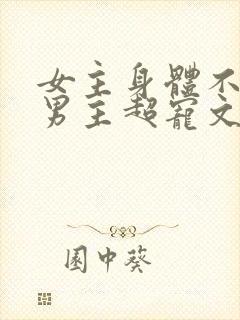 女主身體不
男主超寵文
園中葵